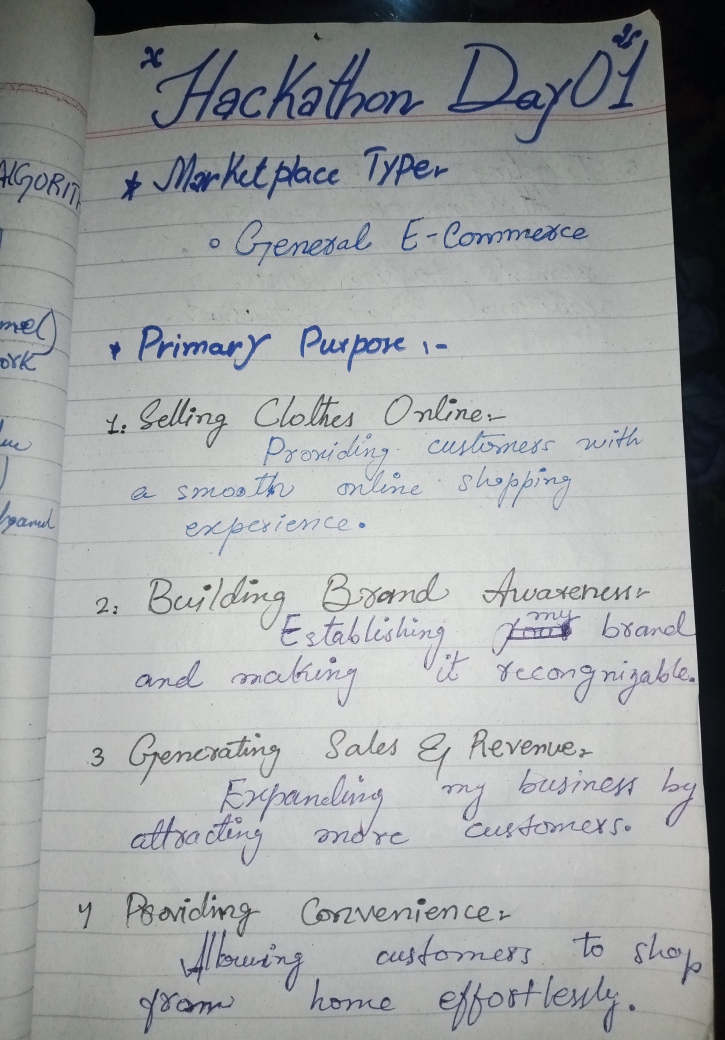 "Hackathon Day 01"
* Marketplace Type:-
° General E-Commerce
* Primary Purpose :-
1: Selling Clothes Online:-
Providing customers with
a smooth online shopping
experience.
2: Building Brand Awareness:-
Establishing my brand
and making it recongnizable.
3 Generating Sales & Revenue:-
Expanding my business by
attracting more customers.
4 Providing Convenience:-
Allowing customers to shop
from home effortlessly.
ALGORIT
mel)
ork
)